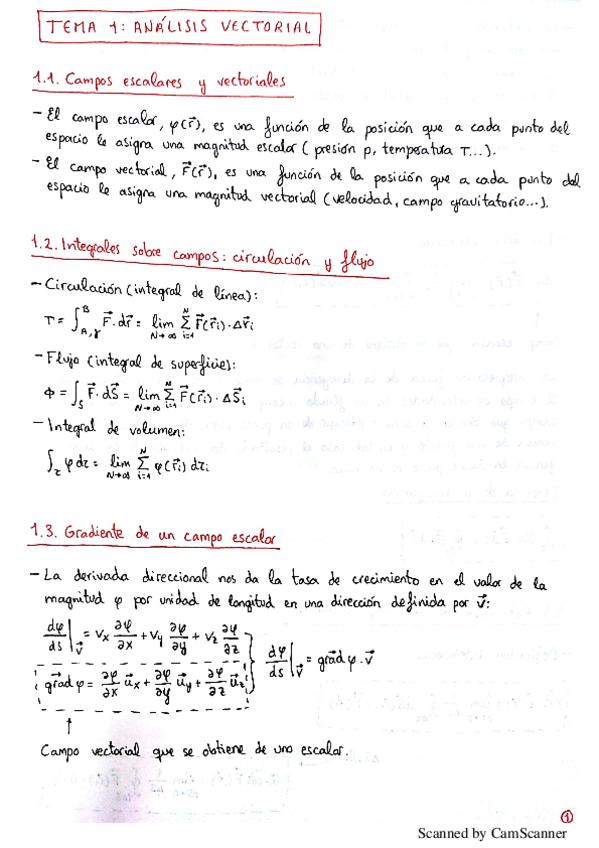 TEMA 1: ANÁLISIS VECTORIAL
1.1. Campos escalares y vectoriales
- El campo escalar, φ(r⃗), es una función de la posición que a cada punto del
espacio le asigna una magnitud escalar (presión p, temperatura T...).
- El campo vectorial, F⃗(r⃗), es una función de la posición que a cada punto del
espacio le asigna una magnitud vectorial (velocidad, campo gravitatorio...).
1.2. Integrales sobre campos: circulación y flujo
- Circulación (integral de línea):
T = ∫_{A,γ}^{B} F⃗·dr⃗ = lim_{N→∞} Σ_{i=1}^{N} F⃗(r⃗ᵢ)·Δr⃗ᵢ
- Flujo (integral de superficie):
Φ = ∫_S F⃗·dS⃗ = lim_{N→∞} Σ_{i=1}^{N} F⃗(r⃗ᵢ)·ΔS⃗ᵢ
- Integral de volumen:
∫_τ φ dτ = lim_{N→∞} Σ_{i=1}^{N} φ(r⃗ᵢ) dτᵢ
1.3. Gradiente de un campo escalar
- La derivada direccional nos da la tasa de crecimiento en el valor de la
magnitud φ por unidad de longitud en una dirección definida por v⃗:
dφ/ds|_v⃗ = vₓ ∂φ/∂x + v_y ∂φ/∂y + v_z ∂φ/∂z
dφ/ds|_v⃗ = grad⃗ φ · v⃗
grad⃗ φ = ∂φ/∂x u⃗ₓ + ∂φ/∂y u⃗_y + ∂φ/∂z u⃗_z
↑
Campo vectorial que se obtiene de uno escalar.
1
Scanned by CamScanner